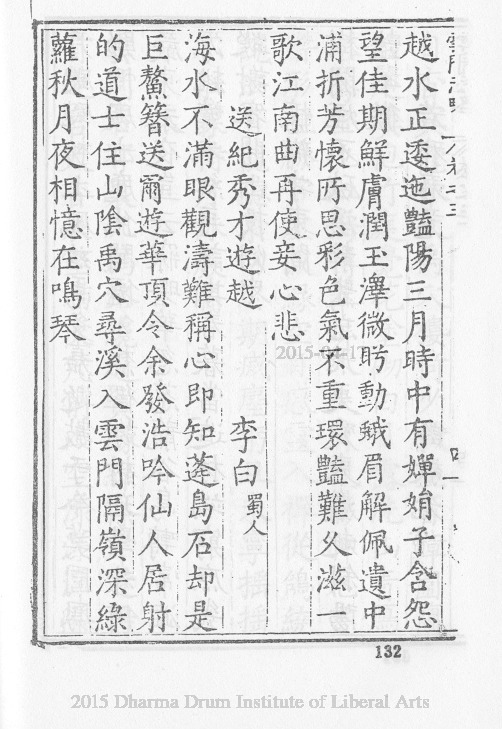 越水正逶迤豔陽三月時中有嬋娟子含怨
望佳期鮮膚潤玉澤微眄動蛾眉解佩遺中
浦折芳懷所思彩色氣不重環豔難久滋一
歌江南曲再使妾心悲
送紀秀才遊越 李白蜀人
海水不滿眼觀濤難稱心即知蓬島石却是
巨鰲簪送爾遊華頂令余發浩吟仙人居射
的道士住山陰禹穴尋溪入雲門隔嶺深綠
蘿秋月夜相憶在鳴琴
132
2015-04-17
2015 Dharma Drum Institute of Liberal Arts